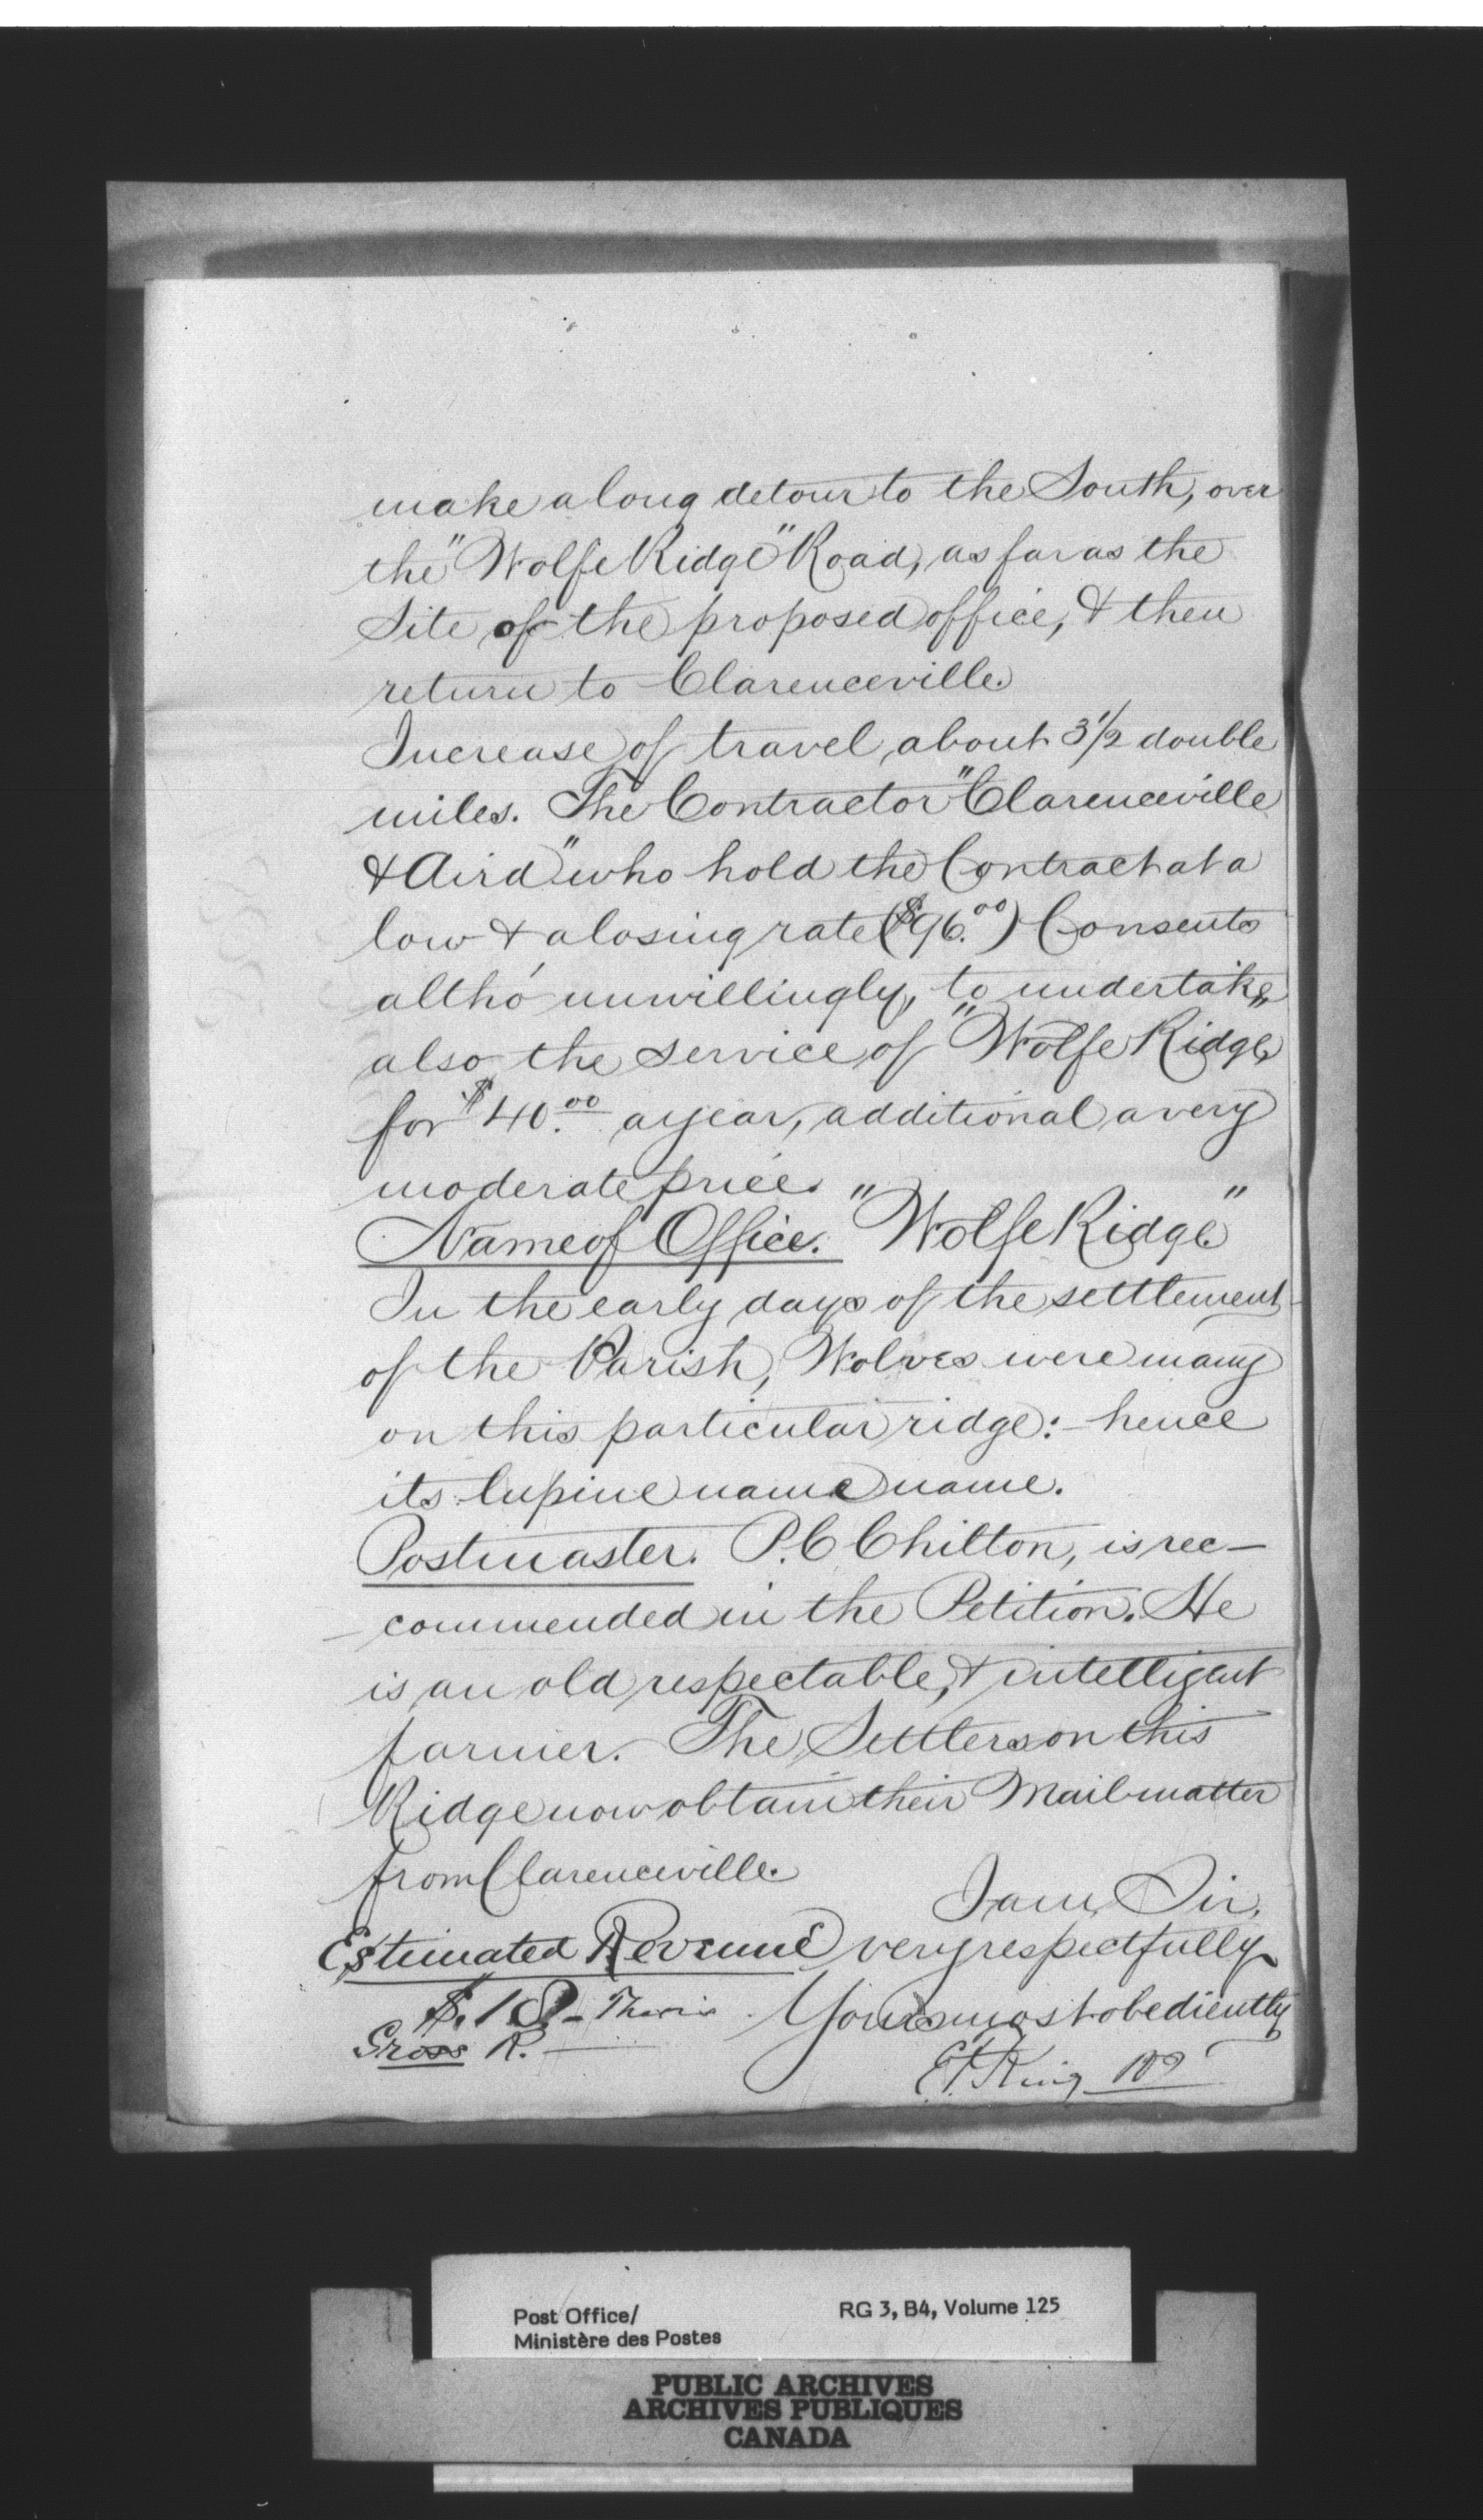 make a long detour to the South, over
the "Wolfe Ridge" Road, as far as the
Site of the proposed office, & then
return to Clarenceville.
Increase of travel about 3 1/2 double
miles. The Contractor "Clarenceville
& Aird" who hold the Contract at a
low & a losing rate ($96.00) Consents
altho' unwillingly, to undertake
also the service of "Wolfe Ridge"
for $40.00 a year, additional a very
moderate price.
Name of Office. "Wolfe Ridge."
In the early days of the settlement
of the Parish, Wolves were many
on this particular ridge:- hence
its lupine name name.
Postmaster. P. C Chilton, is rec-
-commended in the Petition. He
is an old respectable, & intelligent
farmer. The Settlers on this
Ridge now obtain their Mail matter
from Clarenceville.
I am, Sir,
Estimated Revenue very respectfully
$.18- Yours most obediently
Gross R.
E.F. King
Post Office/
Ministère des Postes
RG 3, B4, Volume 125
PUBLIC ARCHIVES
ARCHIVES PUBLIQUES
CANADA